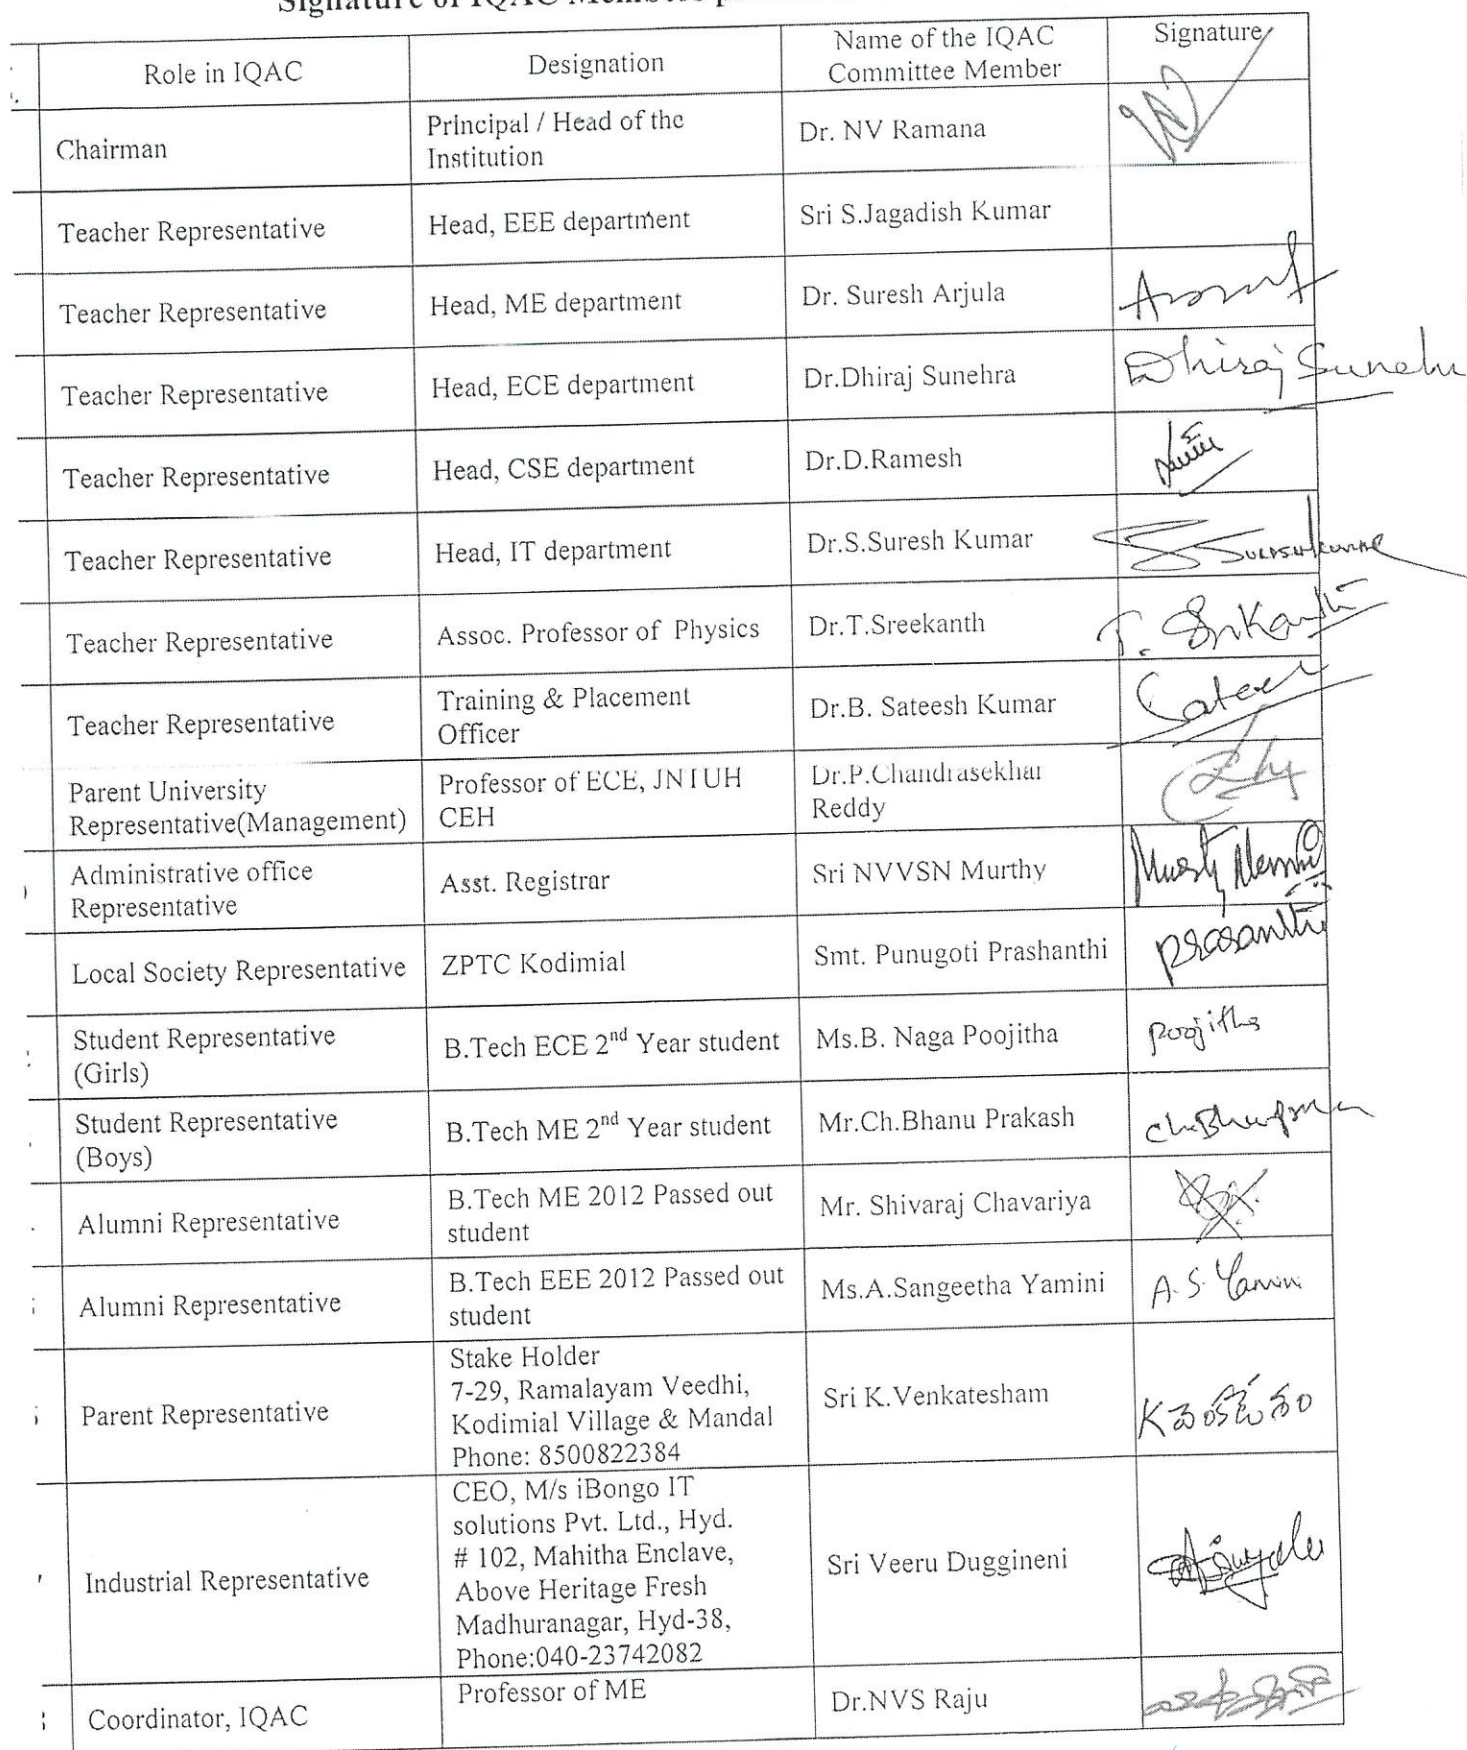 Signature of IQAC Members
Role in IQAC
Designation
Name of the IQAC
Committee Member
Signature
Chairman
Principal / Head of the
Institution
Dr. NV Ramana
Teacher Representative
Head, EEE department
Sri S.Jagadish Kumar
Teacher Representative
Head, ME department
Dr. Suresh Arjula
Teacher Representative
Head, ECE department
Dr.Dhiraj Sunehra
Dhiraj Sunehra
Teacher Representative
Head, CSE department
Dr.D.Ramesh
Teacher Representative
Head, IT department
Dr.S.Suresh Kumar
Sureshkumar
Teacher Representative
Assoc. Professor of Physics
Dr.T.Sreekanth
T. Srikanth
Teacher Representative
Training & Placement
Officer
Dr.B. Sateesh Kumar
Parent University
Representative(Management)
Professor of ECE, JNTUH
CEH
Dr.P.Chandrasekhar
Reddy
Administrative office
Representative
Asst. Registrar
Sri NVVSN Murthy
Local Society Representative
ZPTC Kodimial
Smt. Punugoti Prashanthi
prasanthi
Student Representative
(Girls)
B.Tech ECE 2nd Year student
Ms.B. Naga Poojitha
Poojitha
Student Representative
(Boys)
B.Tech ME 2nd Year student
Mr.Ch.Bhanu Prakash
Alumni Representative
B.Tech ME 2012 Passed out
student
Mr. Shivaraj Chavariya
Alumni Representative
B.Tech EEE 2012 Passed out
student
Ms.A.Sangeetha Yamini
A.S. Yamini
Parent Representative
Stake Holder
7-29, Ramalayam Veedhi,
Kodimial Village & Mandal
Phone: 8500822384
Sri K.Venkatesham
K వెంకటేశం
Industrial Representative
CEO, M/s iBongo IT
solutions Pvt. Ltd., Hyd.
# 102, Mahitha Enclave,
Above Heritage Fresh
Madhuranagar, Hyd-38,
Phone:040-23742082
Sri Veeru Duggineni
Coordinator, IQAC
Professor of ME
Dr.NVS Raju